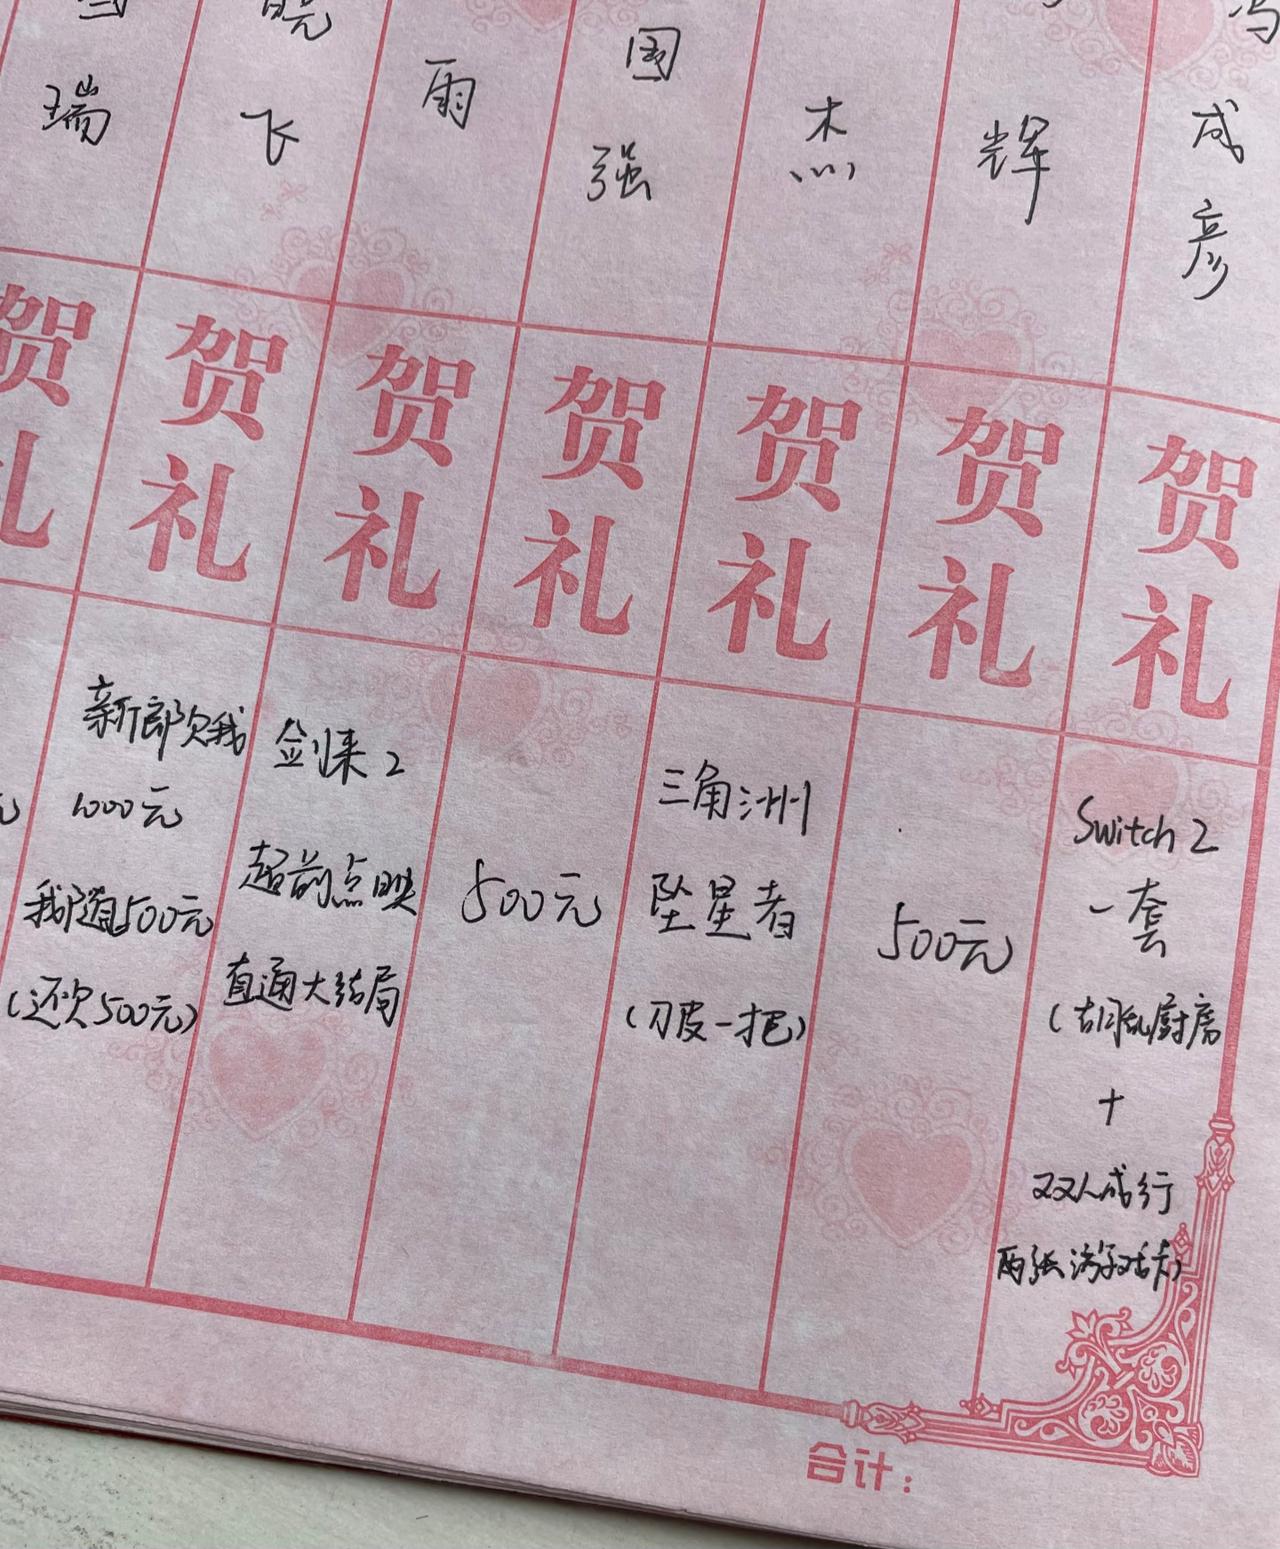 瑞
晓
飞
雨
国
强
杰
辉
冯
成
彦
贺礼
贺礼
贺礼
贺礼
贺礼
贺礼
贺礼
元
新郎欠我
1000元
我随500元
(还欠500元)
剑来2
超前点映
直通大结局
500元
三角洲
坠星者
(刀皮一把)
500元
Switch 2
一套
(胡闹厨房
+
双人成行
两张游戏卡)
合计：